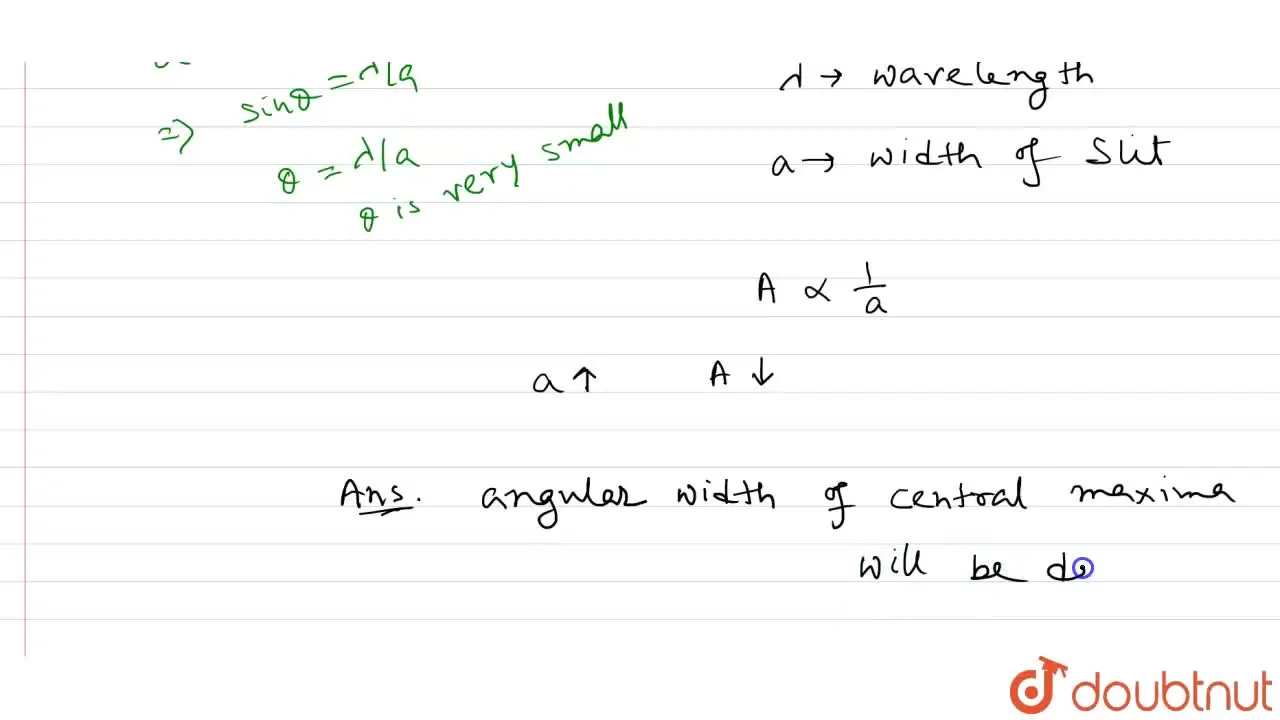 ⇒ sinθ = λ/a
θ = λ/a
θ is very small
λ → wavelength
a → width of Slit
A ∝ 1/a
a ↑ A ↓
Ans. angular width of central maxima
will be de
doubtnut